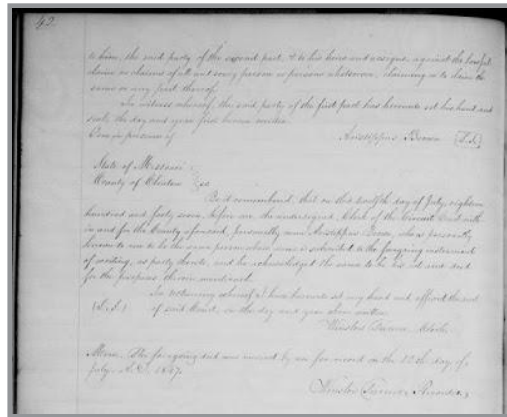 42
to him, the said party of the second part, & to his heirs and assigns, against the lawful
claim or claims of all and every person or persons whatsoever, claiming or to claim the
same or any part thereof.
In witness whereof, the said party of the first part has hereunto set his hand and
seal, the day and year first herein written.
Done in presence of Aristippus Brown (L.S.)
State of Missouri
County of Clinton ss
Be it remembered, that on this twelfth day of July, eighteen
hundred and forty seven, before me the undersigned, Clerk of the Circuit Court with
in and for the County aforesaid, personally came Aristippus Brown, who is personally
known to me to be the same person whose name is subscribed to the foregoing instrument
of writing, as party thereto, and he acknowledged the same to be his act and deed
for the purposes therein mentioned.
In testimony whereof, I have hereunto set my hand and affixed the seal
(L.S.) of said Court, on the day and year above written.
Winslow Turner, Clerk
Mem. The foregoing deed was received by me for record on the 12th day of
July, A.D. 1847.
Winslow Turner, Recorder